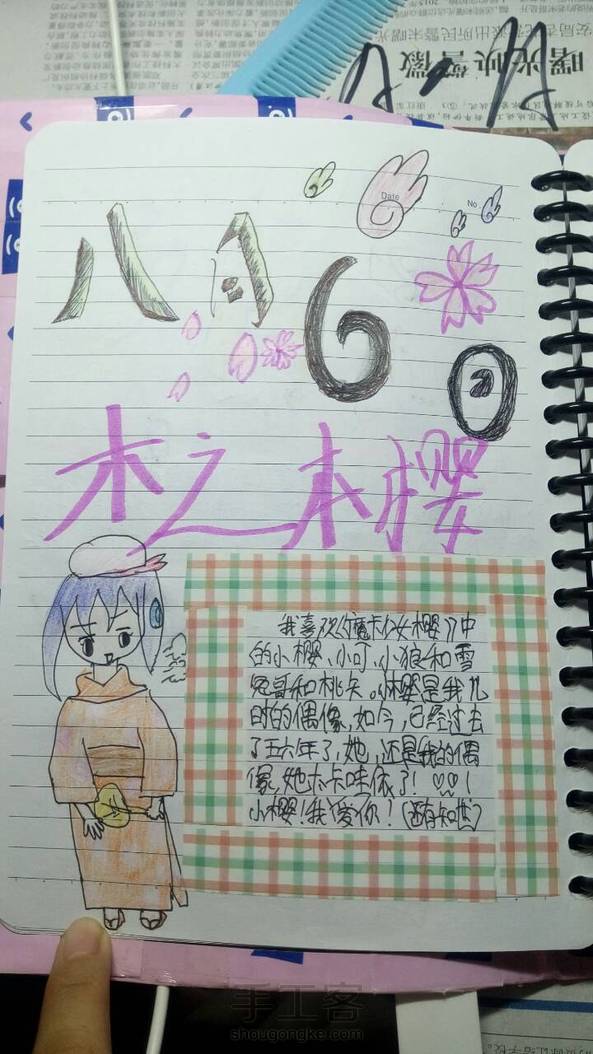 曙光帧警徽
A·A
Date
No
八月6日
木之本樱
我喜欢《魔卡少女樱》中
的小樱、小可、小狼和雪
兔哥和桃矢。小樱是我儿
时的偶像，如今，已经过去
了五六年了，她，还是我的偶
像，她太卡哇依了！♡♡！
小樱！我爱你！（还有知世）
手工客
shougongke.com